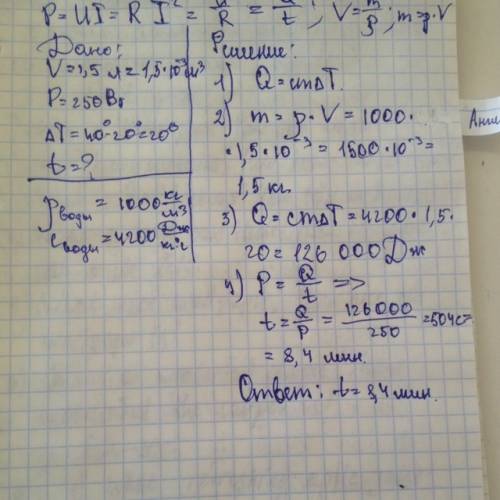 P = UI = R I² = U²/R = Q/t ; V = m/ρ ; m = ρ·V
Дано:
V = 1,5 л = 1,5·10⁻³ м³
P = 250 Вт
ΔT = 40° - 20° = 20°
t = ?
ρ воды = 1000 кг/м³
c воды = 4200 Дж/кг·°C
Решение:
1) Q = cmΔT.
2) m = ρ·V = 1000·
·1,5·10⁻³ = 1500·10⁻³ =
1,5 кг
3) Q = cmΔT = 4200·1,5·
20 = 126 000 Дж
4) P = Q/t =>
t = Q/P = 126000/250 = 504 c =
= 8,4 мин.
Ответ: t = 8,4 мин.